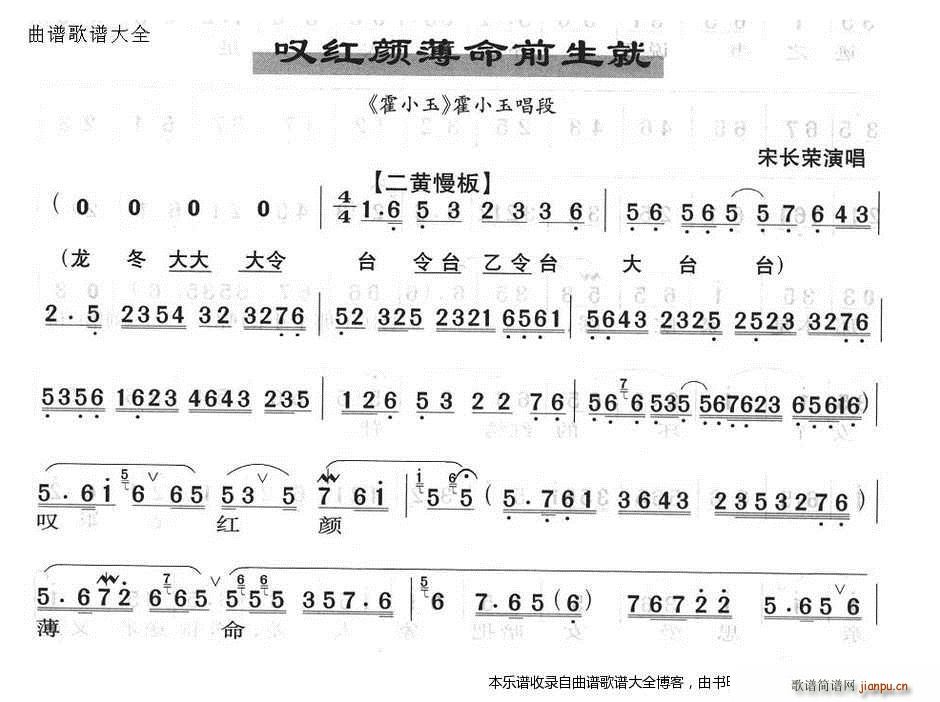 曲谱歌谱大全
叹红颜薄命前生就
《霍小玉》霍小玉唱段
宋长荣演唱
【二黄慢板】
( 0 0 0 0 | 4/4 1.6 5 3 2 3 3 6 | 56 565 57 6 43 |
(龙 冬 大大 大令 台 令台 乙令台 大 台 台)
2.5 2354 32 3276 | 52 325 2321 6561 | 5643 2325 2523 3276 |
5356 1623 4643 235 | 126 53 22 76 | 56 7 6 535 567623 65616) |
5.61 5 6 65 53 5 7 61 | 1 5 5 (5.761 3643 2353276) |
叹 红 颜
5.672 7 665 6 5 6 55 357.6 | 5 6 7.65 (6) | 7672 2 5.65 6
薄 命
本乐谱收录自曲谱歌谱大全博客，由书
歌谱简谱网 jianpu.cn